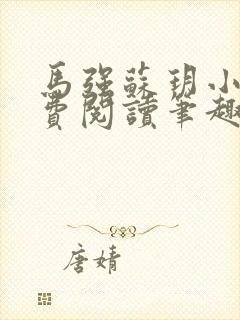 馬強蘇玥小
費閱讀筆趣
唐婧